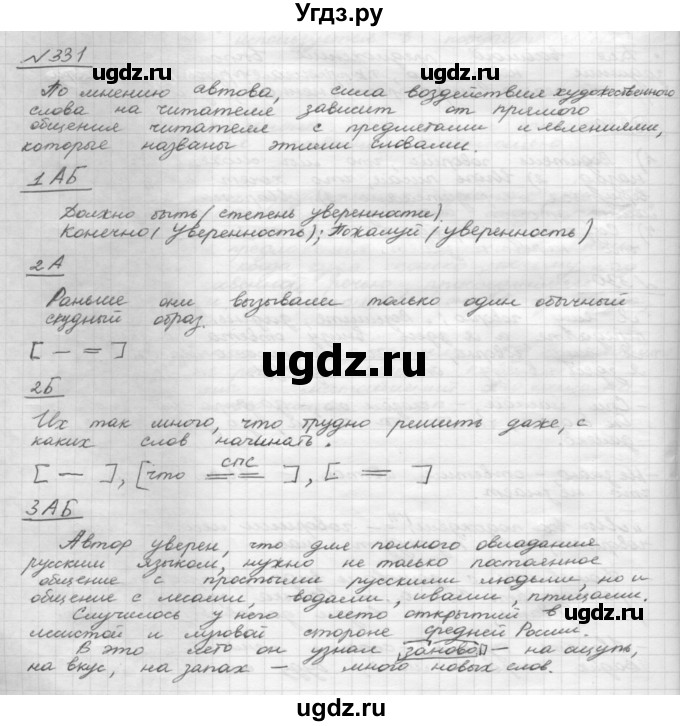 Угдз.ру
№331
По мнению автова, сила воздействия художественного
слова на читателя зависит от прямого
общения читателя с предметами и явлениями,
которые названы этими словами.
1АБ
Должно быть (степень уверенности).
Конечно (уверенность); Пожалуй (уверенность)
2А
Раньше они вызывали только один обычный
скудный образ.
[ — = ]
2Б
Их так много, что трудно решить даже, с
каких слов начинать.
[ — ], [что спс ], [ = ]
3АБ
Автор уверен, что для полного овладания
русским языком, нужно не только постоянное
общение с простыми русскими людьми, но и
общение с лесами, водами, ивами, птицами.
Случилось у него лето открытий в
лесистой и луговой стороне средней России.
В это лето он узнал заново — на ощупь,
на вкус, на запах — много новых слов.
ugdz.ru
ugdz.ru
ugdz.ru
ugdz.ru
ugdz.ru
ugdz.ru
ugdz.ru
ugdz.ru
ugdz.ru
ugdz.ru
ugdz.ru
ugdz.ru
ugdz.ru